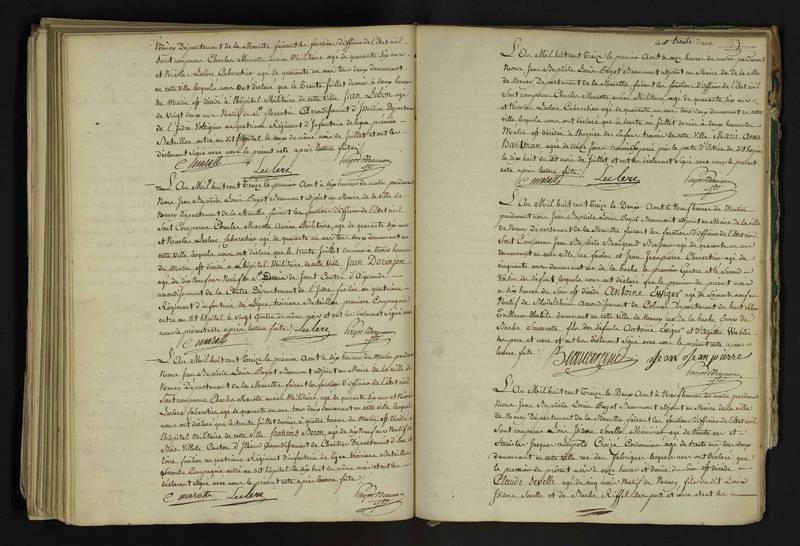 Nancy Département de la Meurthe faisant les fonctions d'Officier de l'état civil
Sont comparus Charles Marotte ancien Militaire, agé de quarante six ans
et Nicolas Leclerc Cabaretier agé de quarante un ans tous deux demeurant
en cette ville lesquels nous ont déclaré que le trente juillet dernier à deux heures
du Matin est décédé à l'hôpital Militaire de cette Ville Jean Lebon agé
de Vingt deux ans Natif de St. florentin Arrondissement d'Issoudun Département
de l'Indre Voltigeur au quatrième Régiment d'Infanterie de ligne, premier
Bataillon, entré au dit hôpital le du même mois de juillet et ont les
déclarans signé avec nous le présent acte après lecture faite
C marotte Leclerc
L'An Mil huit cent Treize le premier Aout à dix heures du matin pardevant
Nous Jean Baptiste Louis Bayot Beaumont adjoint au Maire de la Ville de
Nancy Département de la Meurthe, faisant les fonctions d'Officier de l'Etat civil
Sont Comparus Charles Marotte Ancien Militaire, agé de quarante six ans
et Nicolas Leclerc, Cabaretier agé de quarante un ans tous deux demeurant en
cette Ville, lesquels nous ont déclaré que le trente juillet dernier à trois heures
du Matin est décédé à l'hôpital Militaire de cette Ville Jean Dorenson
agé de dix neuf ans Natif de de font Canton d'Aigurande
arrondissement de la Châtre Département de l'Indre, fusilier au quatrième
Régiment d'infanterie de Ligne, troisième Bataillon, premiere Compagnie
entré au dit hôpital le Vingt quatre du même mois et ont les déclarans signé avec
nous le présent acte après lecture faite
C marotte Leclerc
L'An Mil huit cent Treize le premier Aout à dix heures du matin pardevant
Nous Jean Baptiste Louis Bayot Beaumont adjoint au Maire de la Ville de
Nancy Département de la Meurthe faisant les fonctions d'Officier de l'état civil
Sont comparus Charles Marotte ancien Militaire, agé de quarante six ans et Nicolas
Leclerc Cabaretier agé de quarante un ans tous deux demeurant en cette Ville, lesquels
nous ont déclaré que le trente juillet dernier à quatre heures du Matin est décédé à
l'hôpital Militaire de cette Ville françois Beron agé de dix neuf ans Natif de
Bois Villette Canton d'Illiers Arrondissement de Chartres Département de
fusilier au quatrième Régiment d'infanterie de ligne troisième Bataillon
Seconde Compagnie entré au dit hôpital le dix huit du même mois et ont les
déclarans signé avec nous le présent acte après lecture faite
C marotte Leclerc
L'An Mil huit cent Treize le premier Aout à onze heures du matin pardevant
Nous Jean Baptiste Louis Bayot Beaumont adjoint au Maire de la Ville
de Nancy Département de la Meurthe, faisant les fonctions d'Officier de l'Etat civil
Sont comparus Charles Marotte ancien Militaire, agé de quarante six ans
et Nicolas Leclerc Cabaretier agé de quarante un ans tous deux demeurant en cette
Ville lesquels nous ont déclaré que le trente un juillet dernier à deux heures du
Matin est décédée à l'hospice des Enfans trouvés de cette Ville Marie Anne
Bartman, agée de fille
le dix huit du mois de juillet, et ont les déclarans signé avec nous le présent
acte après lecture faite
C marotte Leclerc
L'An Mil huit cent Treize le Deux Aout à Neuf heures du Matin
pardevant nous Jean Baptiste Louis Bayot Beaumont adjoint au Maire de la ville
de Nancy Département de la Meurthe, faisant les fonctions d'Officier de l'Etat civil
Sont Comparus Jean Baptiste agé de quarante un ans
demeurant en cette ville, rue et Jean Jeanpierre Charentier agé de
cinquante ans demeurant rue de la hache le premier Gendre et le second
Voisin du défunt lesquels nous ont déclaré que le premier du présent mois
à dix heures du soir est décédé Antoine Ewiger agé de soixante neuf ans
Natif de Arrondissement de Colmar Département du haut Rhin
Tailleur d'habits demeurant en cette ville de Nancy rue de la hache époux de
Barbe fils des défunts Antoine Ewiger et d'Agathe
ses pere et mere et ont les déclarans signé avec nous le présent acte après
lecture faite
Jean Jeanpierre
L'An Mil huit cent Treize le Deux Aout à Neuf heures du matin pardevant
Nous Jean Baptiste Louis Bayot Beaumont adjoint au Maire de la ville
de Nancy Département de la Meurthe faisant les fonctions d'Officier de l'état civil
Sont comparus Louis Isidore Sevelle Menuisier agé de trente ans et
Stanislas Jacques Cordonnier agé de trente six ans tous deux
demeurant en cette Ville rue des fabriques lesquels nous ont déclaré que
le premier du présent mois à onze heures et demie du soir est décédé
Claude Sevelle agé de cinq mois Natif de Nancy fils du dit Louis
Isidore Sevelle et de Barbe Riffel ses pere et mere et ont les